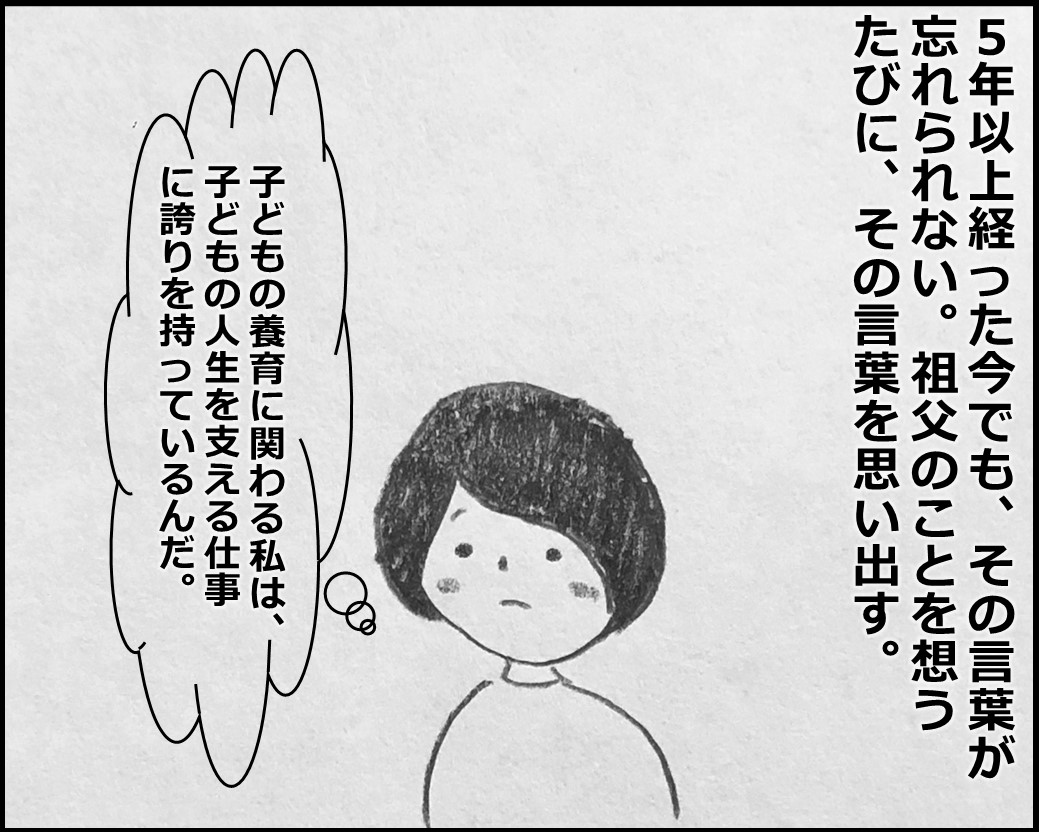 5年以上経った今でも、その言葉が
忘れられない。祖父のことを想う
たびに、その言葉を思い出す。
子どもの養育に関わる私は、
子どもの人生を支える仕事
に誇りを持っているんだ。